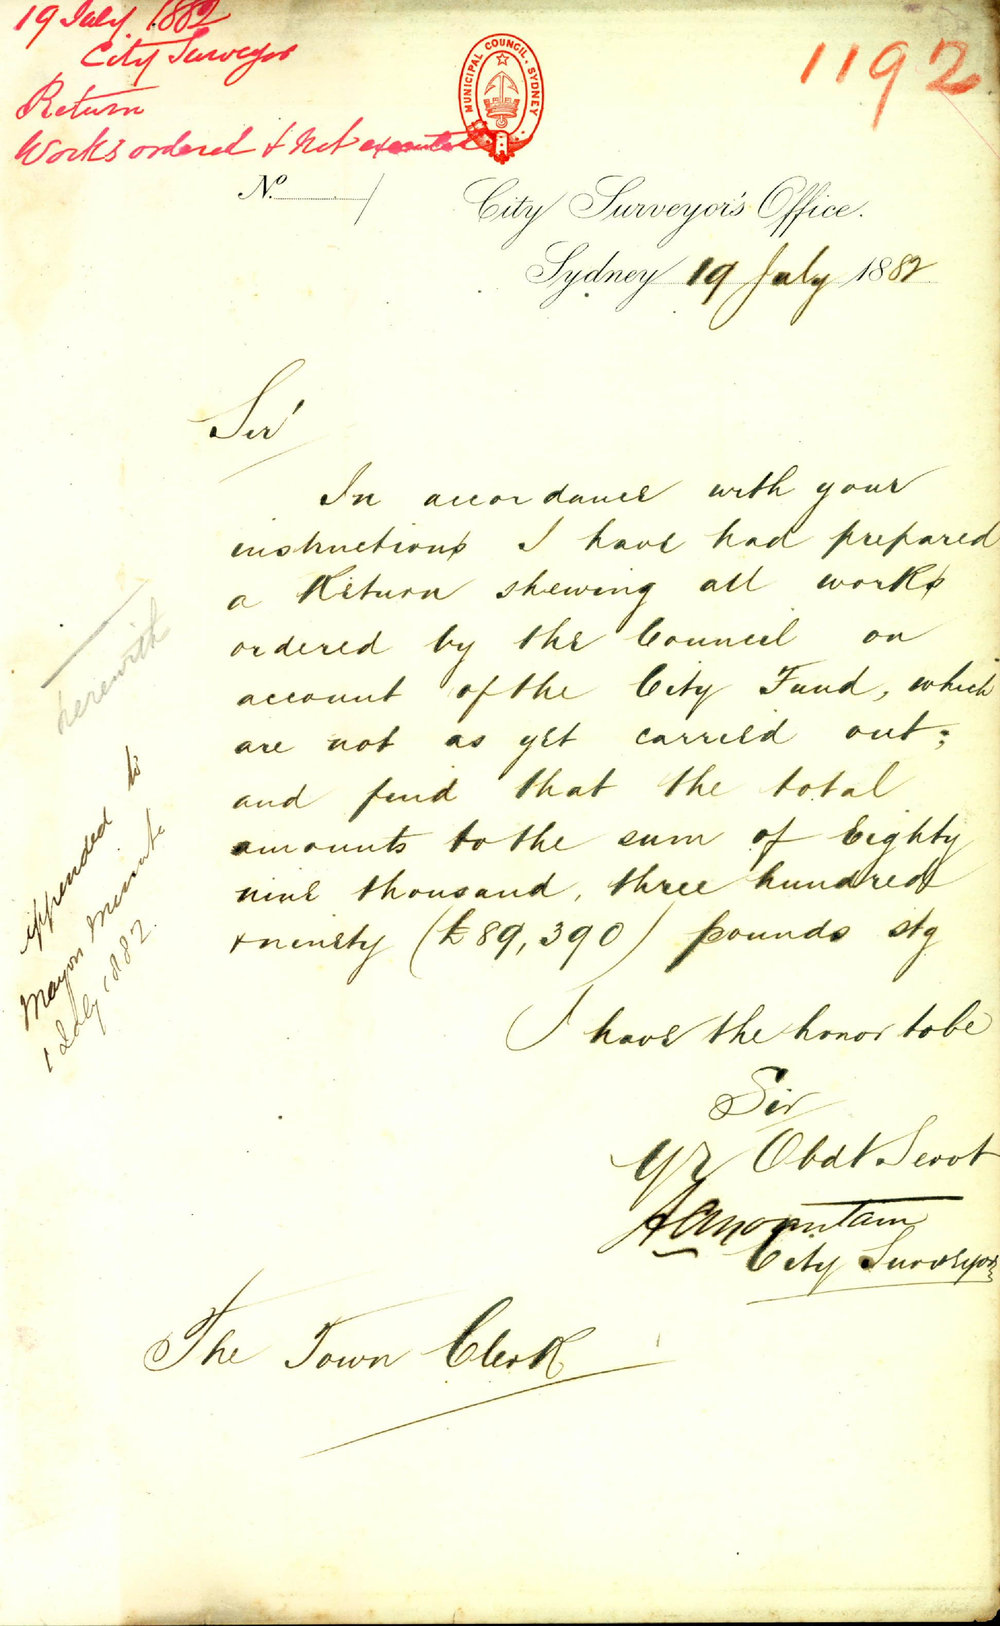 19 July. 1882
City Surveyor
Return
Works ordered & not executed
MUNICIPAL COUNCIL. SYDNEY
1192
No. /
City Surveyor's Office.
Sydney 19 July 1882
Sir
In accordance with your
instructions I have had prepared
a Return shewing all works
ordered by the Council on
account of the City Fund, which
are not as yet carried out;
and find that the total
amounts to the sum of Eighty
nine thousand, three hundred
& ninety (£89,390) pounds stg
I have the honor to be
Sir
Yr Obdt Servt
A C Mountain
City Surveyor
The Town Clerk
herewith
appended to
Mayors Minute
1 July 1882.